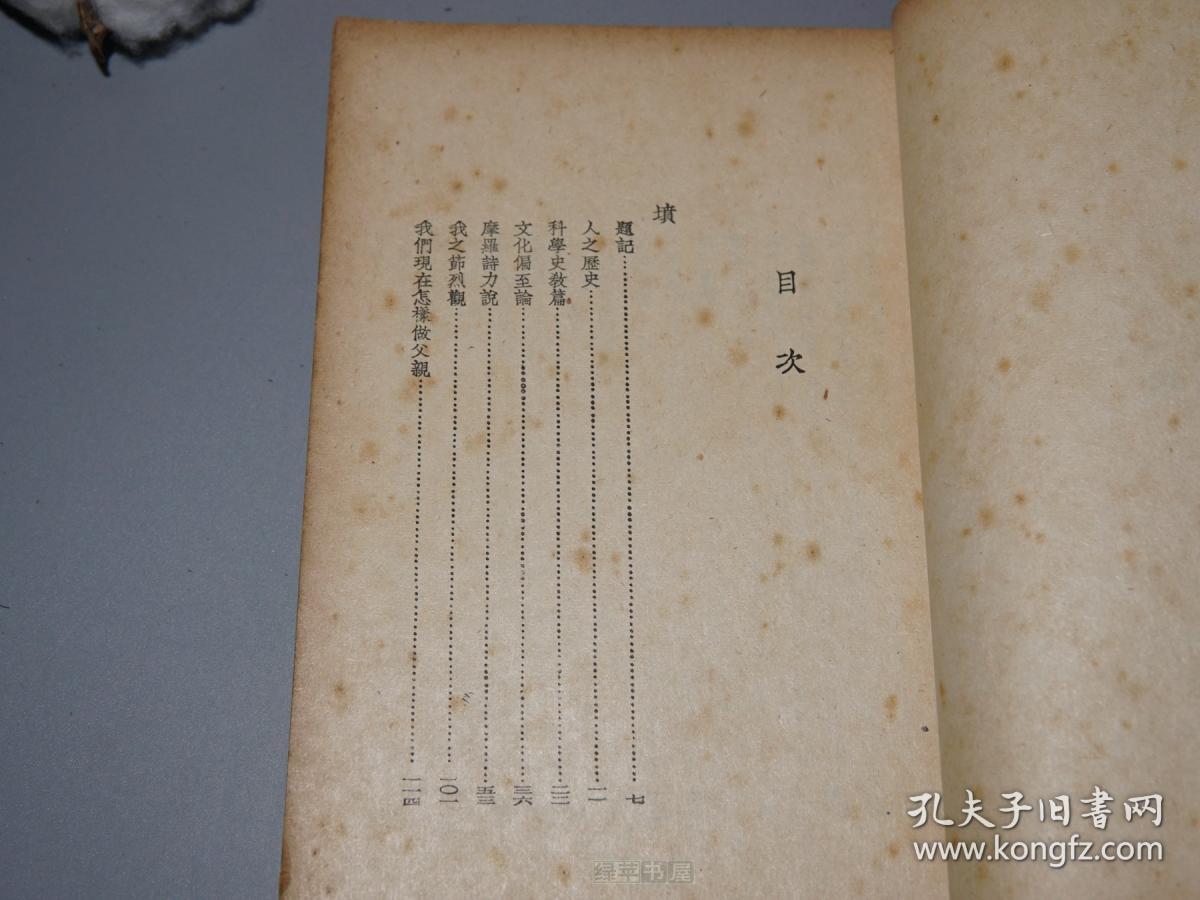 目次
墳
題記……七
人之歷史……一一
科學史敎篇……二二
文化偏至論……三六
摩羅詩力說……五三
我之節烈觀……一〇一
我們現在怎樣做父親……一一四
孔夫子旧书网
www.kongfz.com
绿苹书屋